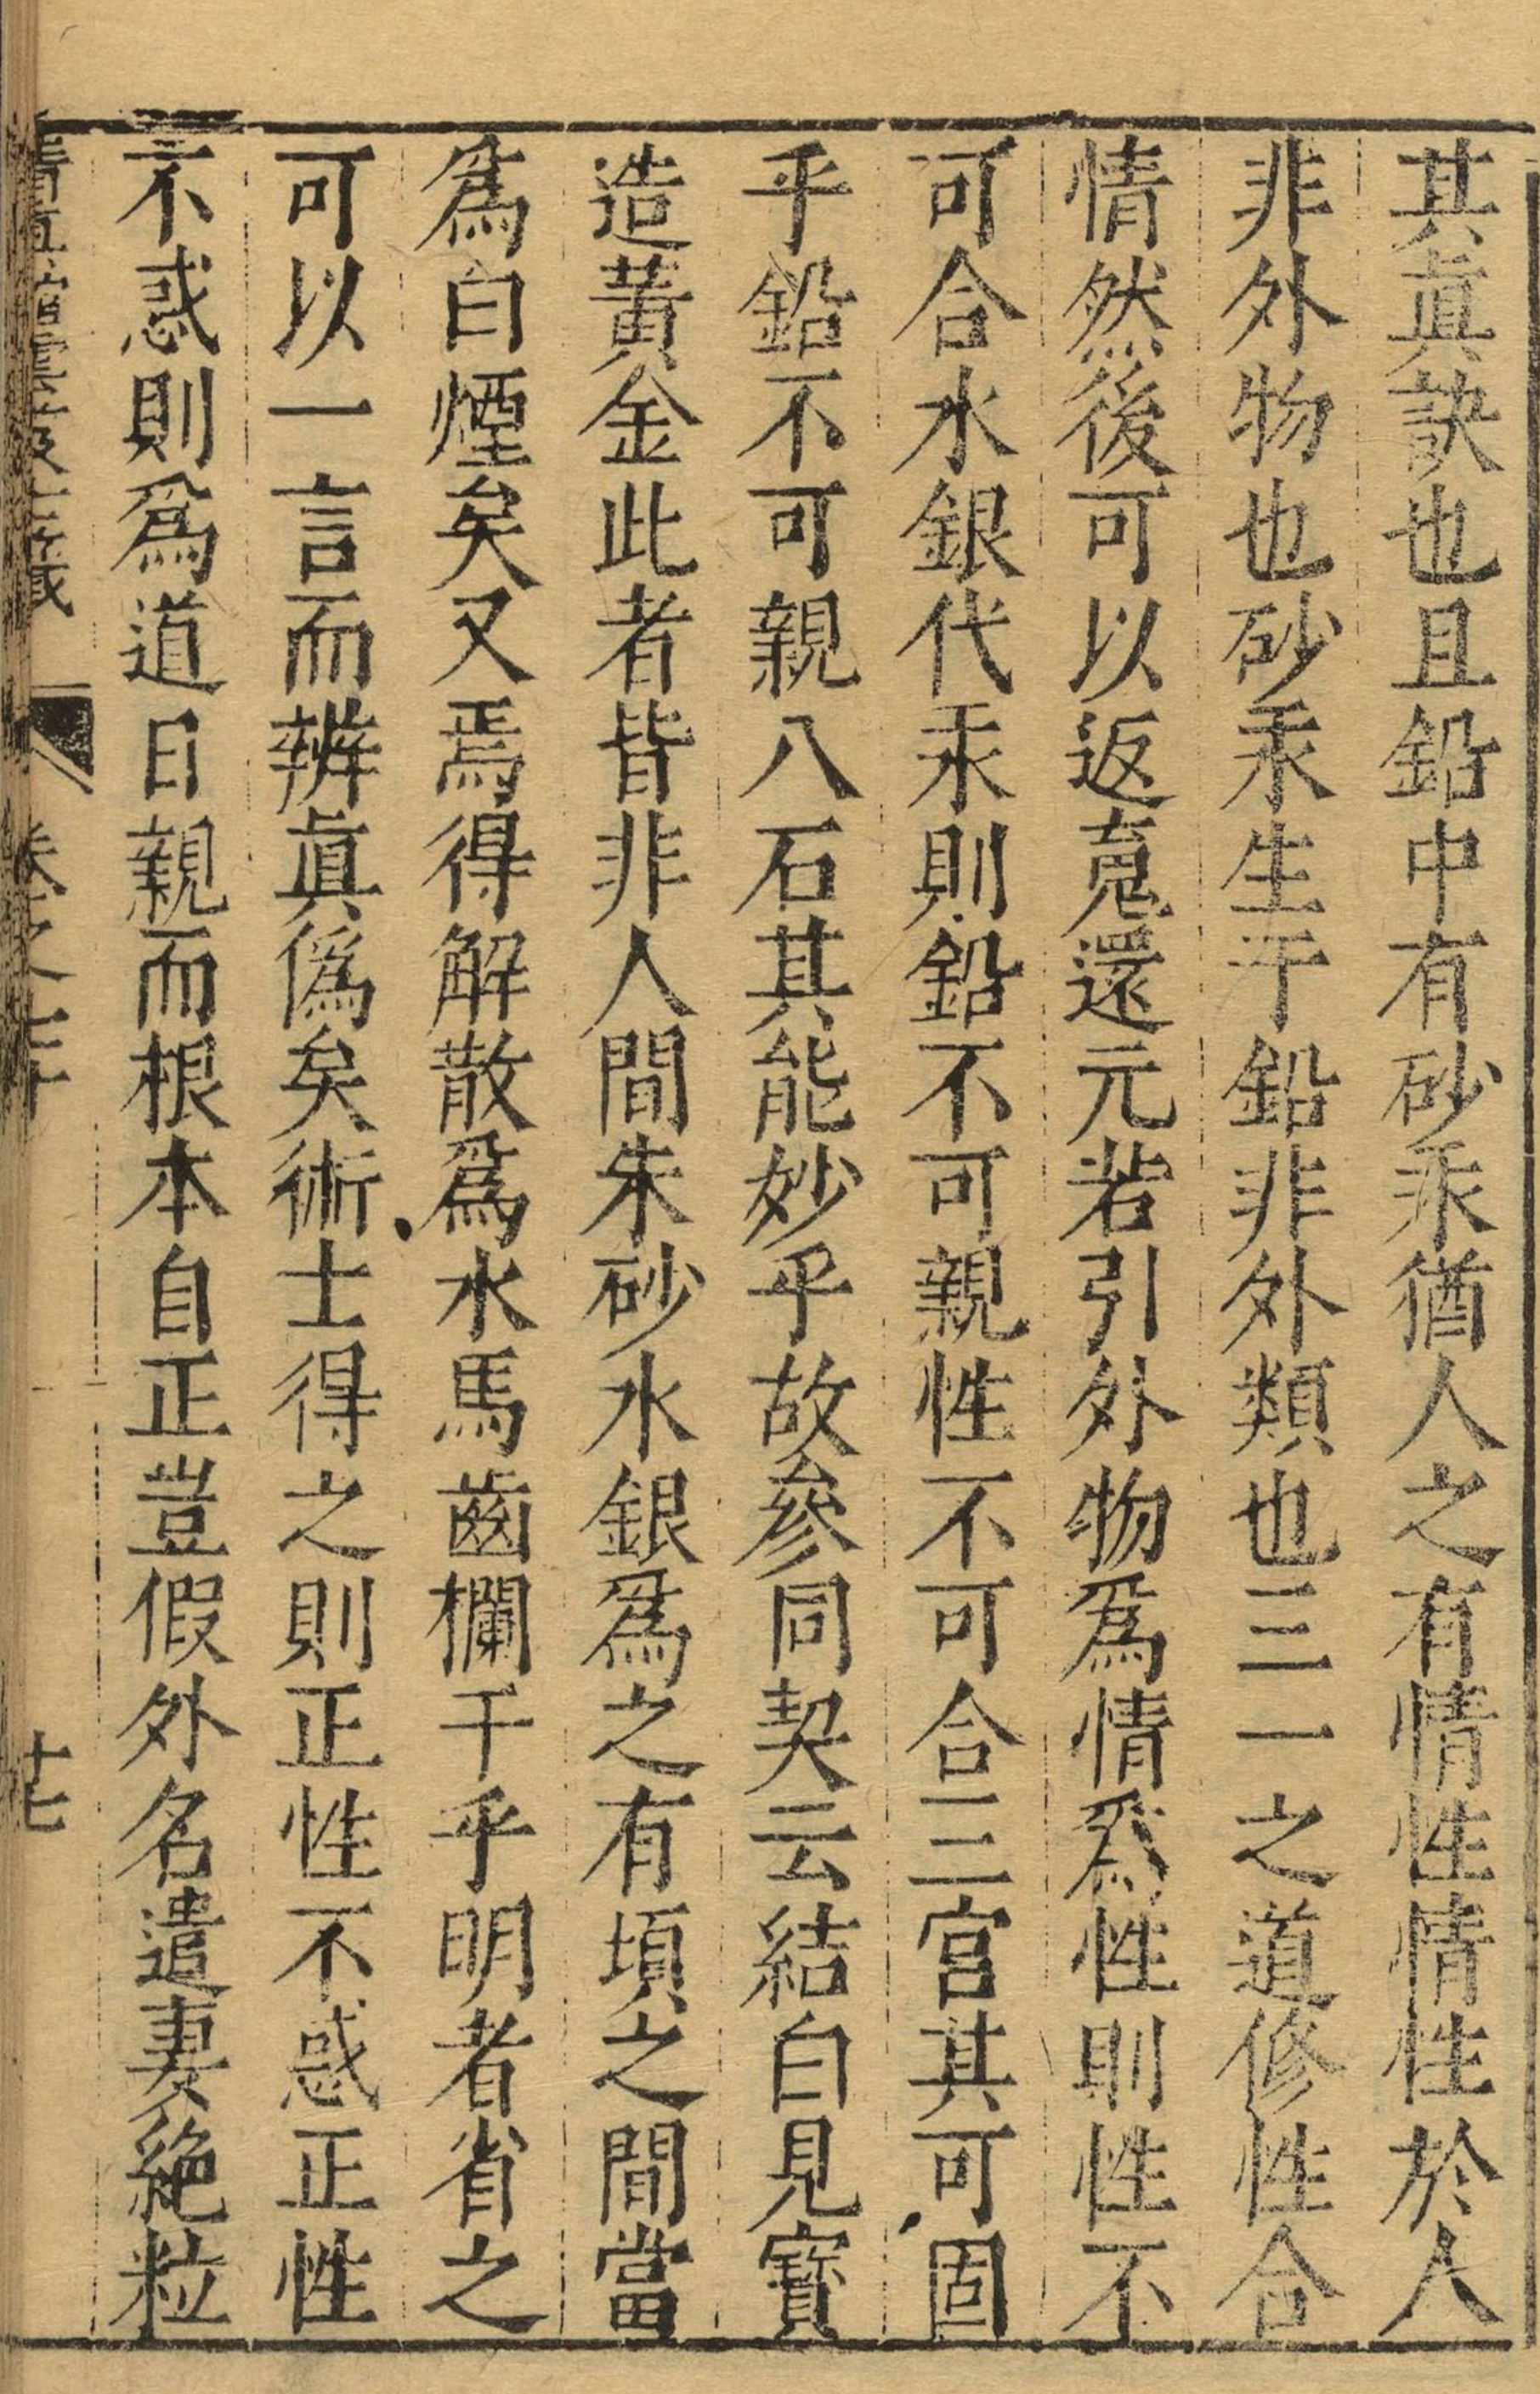 其眞訣也且鉛中有砂汞猶人之有情性情性於人
非外物也砂汞生于鉛非外類也三一之道修性合
情然後可以返䰟還元若引外物爲情爲性則性不
可合水銀代汞則鉛不可親性不可合三宮其可固
乎鉛不可親八石其能妙乎故參同契云結白見寶
造黃金此者皆非人間朱砂水銀爲之有頃之間當
爲白煙矣又焉得解散爲水馬齒欄干乎明者省之
可以一言而辨眞僞矣術士得之則正性不惑正性
不惑則爲道日親而根本自正豈假外名遣妻絕粒
卷之七十 十七